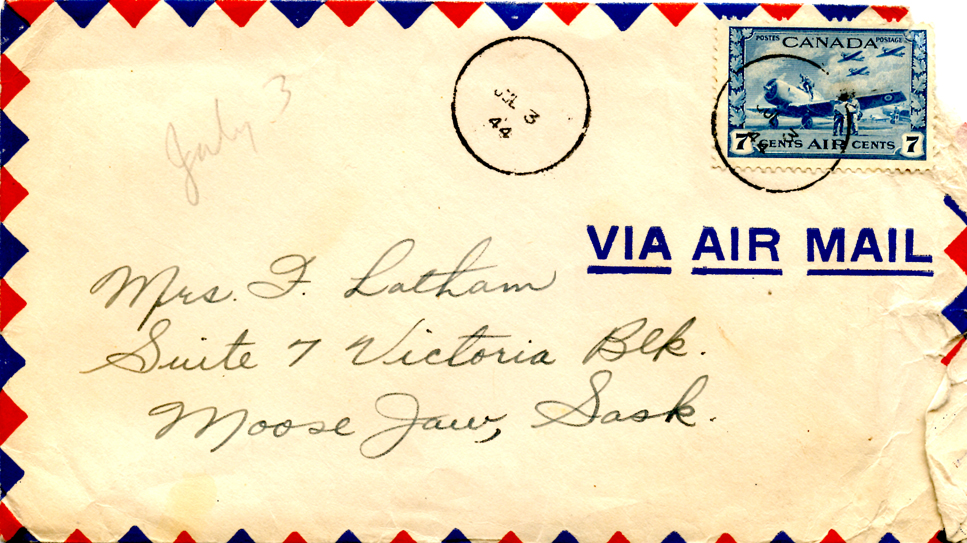 POSTES POSTAGE
CANADA
7 CENTS AIR CENTS 7
JUL 3
44
JUL 3
44
July 3
VIA AIR MAIL
Mrs. F. Latham
Suite 7 Victoria Blk.
Moose Jaw, Sask.